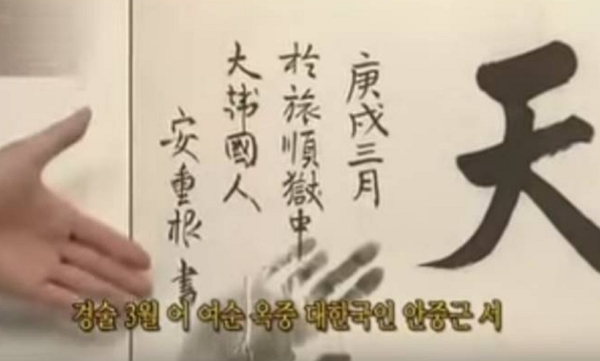 天
庚戌三月
於旅順獄中
大韓國人
安重根 書
경술 3월 어 여순 옥중 대한국인 안중근 서